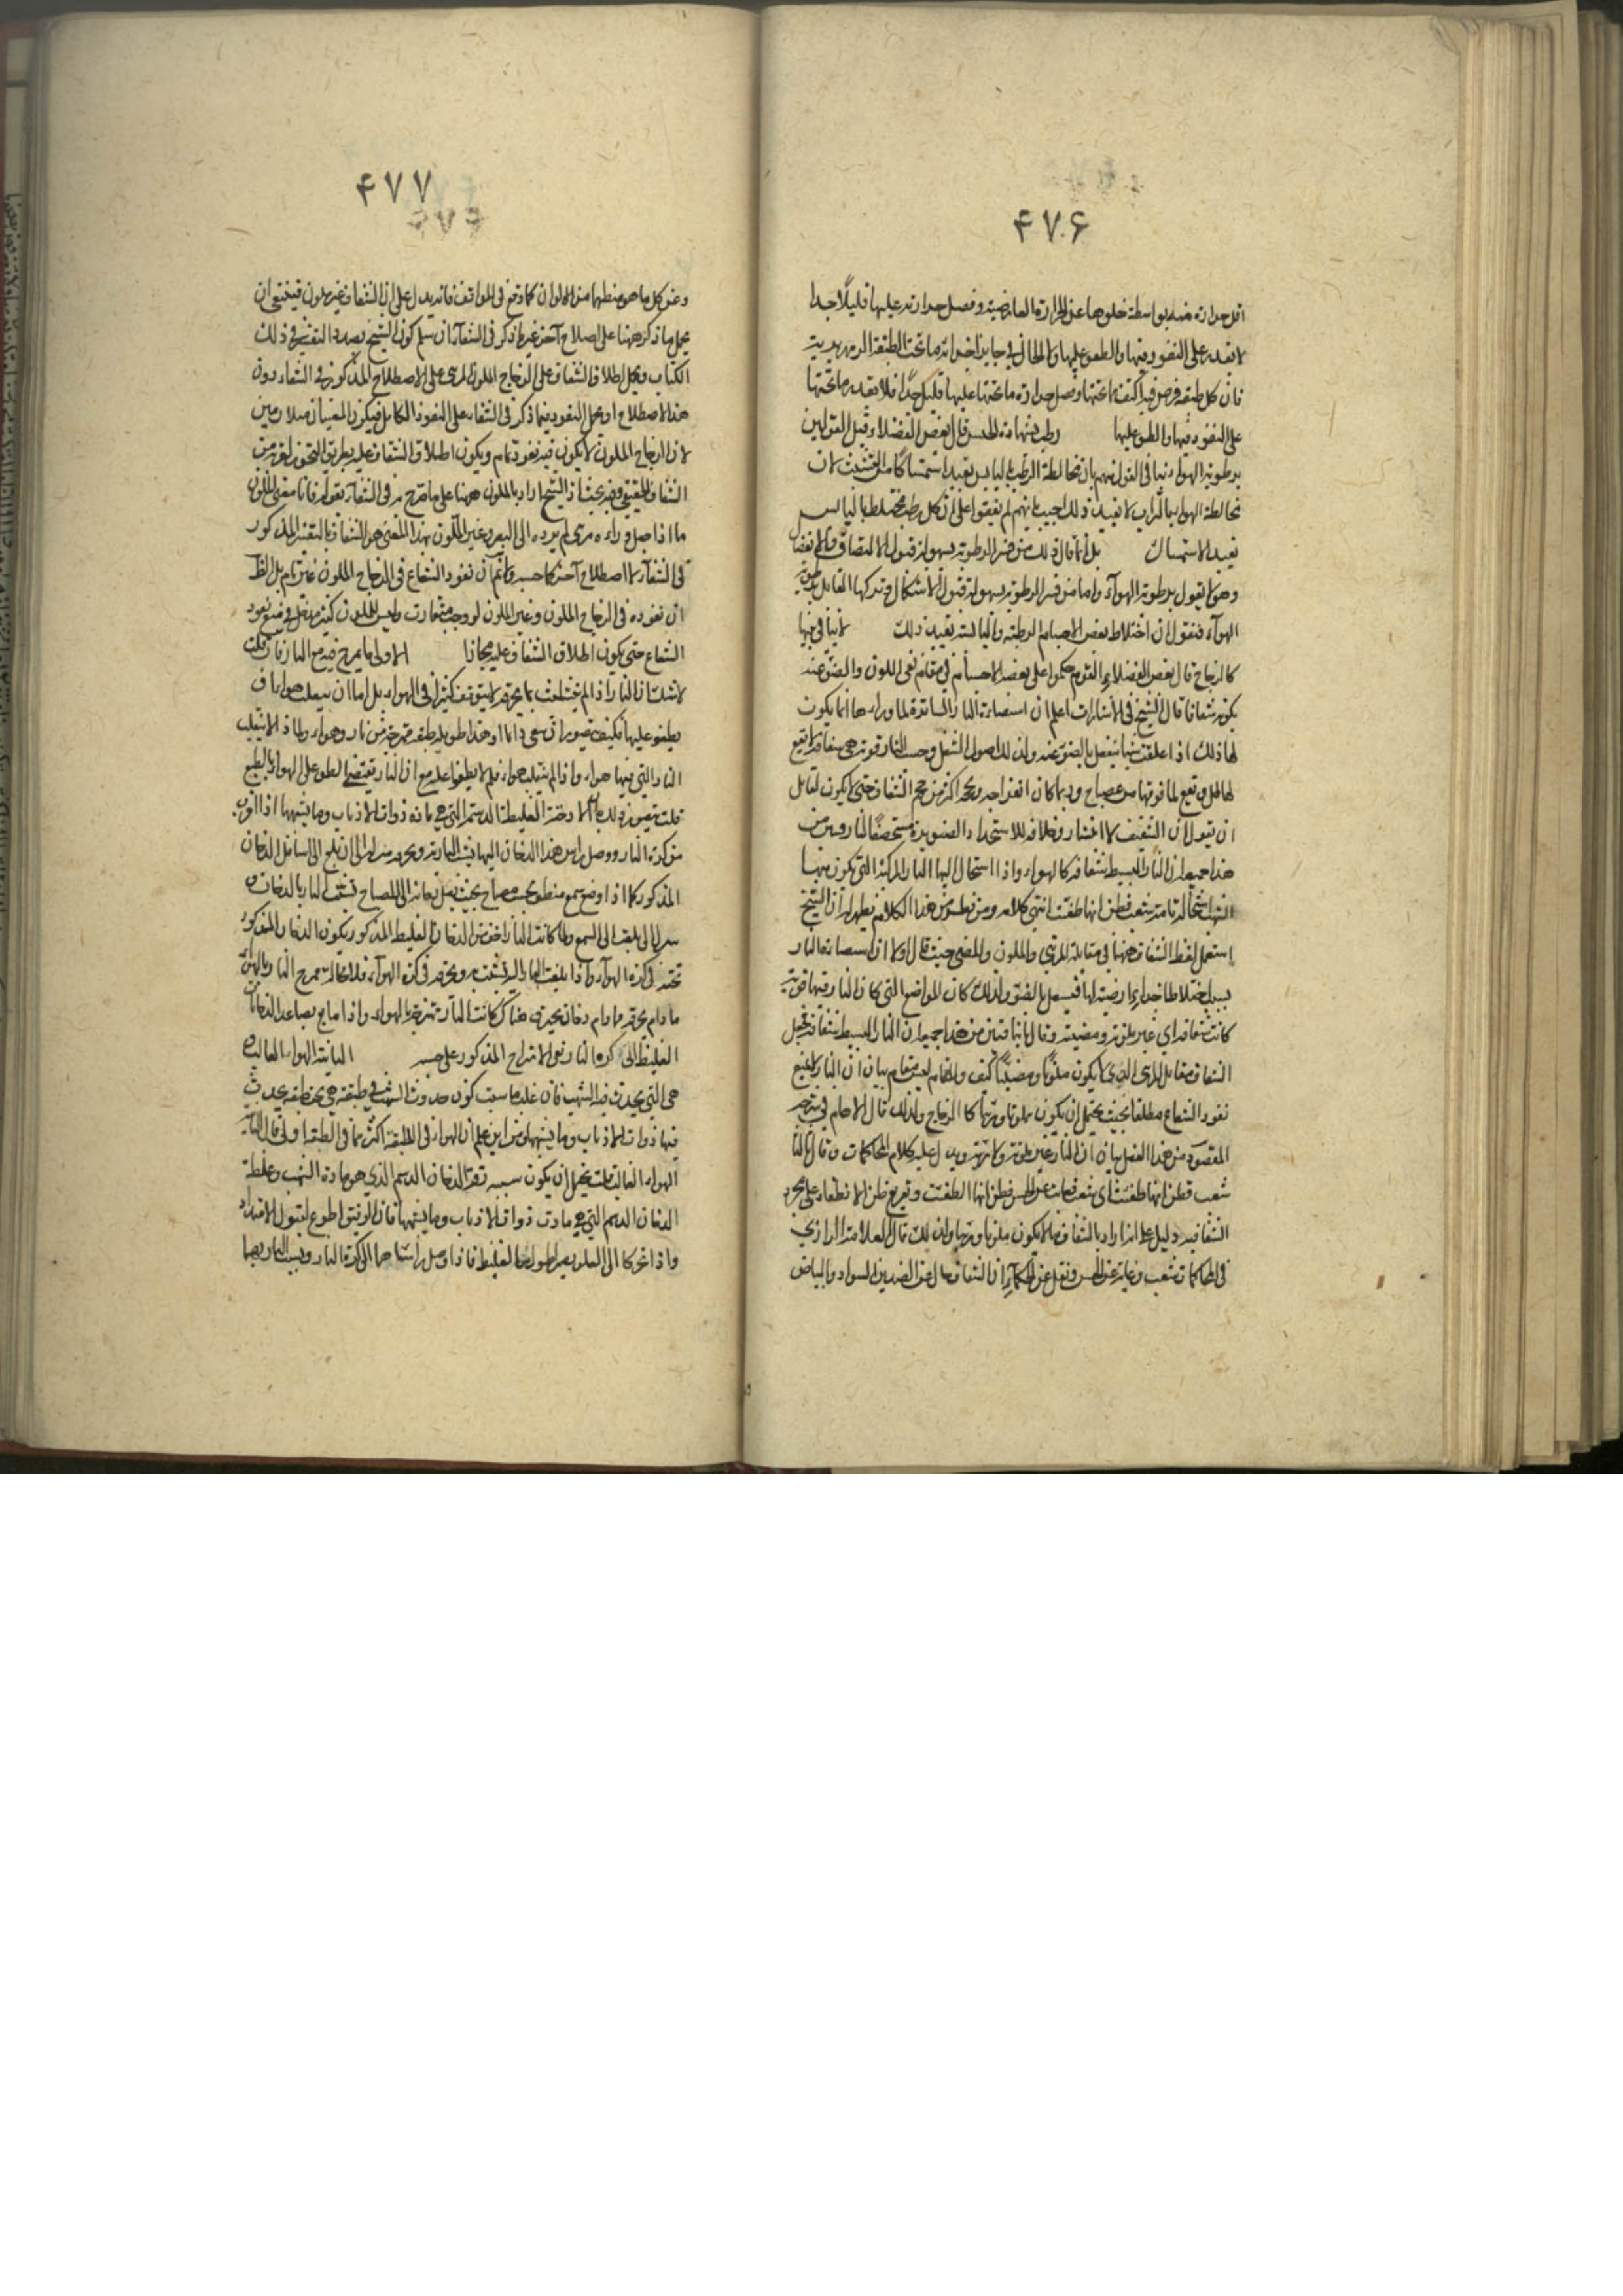 ۴۷۶
اقل حرارة منه بواسطة خلوها عن الحرارة العارضية وفضل حرارته عليها قليلا جدا
لا يقدر على النفوذ فيها والطفو عليها والحال في جانب اخر ما تحت الطبقة الزمهريرية
فان كل طبقة فرض فيه اكثف مما تحتها وفضل حرارة ما تحتها عليها قليل جدا فلا يقدر ما تحتها
على النفوذ فيها والطفو عليها رطب بشهادة الحس قال بعض الفضلاء قيل القول
برطوبة الهواء ينافي القول منهم بان مخالطة الرطب باليابس يفيد استمساكا من التشتت لان
مخالطة الهواء بالتراب لا يفيد ذلك اجيب بانهم لم يتفقوا على ان كل رطب مختلط باليابس
يفيد الاستمساك بل انما قال ذلك من فسر الرطوبة بسهولة قبول الالتصاق والانفصال
وهو لا يقول برطوبة الهواء واما من فسر الرطوبة بسهولة قبول الاشكال وتركها القابل برطوبة
الهواء فنقول ان اختلاط بعض الاجسام الرطبة واليابسة يفيد ذلك
كالزجاج قال بعض الفضلاء القوم حكموا على بعض الاجسام في مقام نفي اللون والضوء عنه
بكونه شفافا قال الشيخ في الاشارات اعلم ان استضاءة النار الساترة لما وراءها انما يكون
لها ذلك اذا علقت شيئا ينفعل بالضوء عنه ولذلك اصول الشعل وحيث النار قوية هي شفافة لا يقع
لها ظل ويقع لما فوقها من مصباح وربما كان انفراجه وحجمه اكثر من حجم الشفاف حتى لا يكون لقائل
ان يقول ان الشفيف لانتشار وخلافه للاستحداد
هذا جميعا ان النار البسيطة شفافة كالهواء واذا استحال اليها النار المركبة التي تكون منها
الشهب استحالة تامة شفت فظن انها طفئت انتهى كلامه ومن هذا الكلام يظهر ان الشيخ
استعمل لفظ الشفاف ههنا في مقابلة المرئي والملون والمضيء حيث قال اولا ان استضاءة النار
بسبب اختلاطا اجزاء ارضية لها فيستعمل بالضوء ولذلك كان المواضع التي كان النار فيها قوية
كانت شفافة اي غير ملونة ومضيئة وقال ثانيا فتبين من هذا جميعا ان النار البسيط شفافة فجعل
الشفاف مقابل المرئي الذي لا يكون ملونا ومضيئا كيف والمقام ليس مقام بيان ان النار لا يمنع
نفوذ الشعاع مطلقا بحيث يحتمل ان يكون ملونا ومرئيا كالزجاج ولذلك قال الامام في شرحه
المقصود من هذا الفصل بيان ان النار غير ملونة ولا مرئية ويدل عليه كلام المحاكمات وقال ثالثا
شفت فظن انها طفئت اي شفت وغابت عن الحس فظن انها انطفئت وتفريع ظن الانطفاء على مجرد
الشفافية دليل على انه اراد بالشفاف ما لا يكون ملونا ومرئيا ولذلك قال العلامة الرازي
في المحاكمات شفت وغابت عن الحس ونقل عن الحكماء ان الشفاف خال عن الضدين السواد والبياض
۴۷۷
وعن كل ما هو منطها من الالوان كما وقع في المواقف فانه يدل على ان الشفاف غير ملون فينبغي ان
يحمل ما ذكر ههنا على اصطلاح آخر غير ما ذكر في الشفاء ان سلم كون الشيخ بصدد التفسير في ذلك
الكتاب ويحمل اطلاق الشفاف على الزجاج الملون المرئي على الاصطلاح المذكور في الشفاء دون
هذا الاصطلاح او يحمل النفوذ فيما ذكر في الشفاء على النفوذ الكامل فيكون المعنيان متلازمين
لان الزجاج الملون لا يكون فيه نفوذ تام ويكون اطلاق الشفاف عليه بطريق التجوز لقربه من
الشفاف الحقيقي وفيه بحث اذ الشيخ اراد بالملون ههنا على ما صرح به في الشفاء بقوله فانا معنى الملون
ما اذا حصل وراءه مرئ لم يرده الى البصر وغير الملون بهذا المعنى هو الشفاف بالتفسير المذكور
في الشفاء لا اصطلاح آخر كما حسبه ولا نم ان نفوذ الشعاع في الزجاج الملون غير تام بل الظ
ان نفوذه في الزجاج الملون وغير الملون لوجهين متقارب وليس للون كثير مدخل في منع نفوذ
الشعاع حتى يكون اطلاق الشفاف عليه مجازا الاولى ما يمزج فيه مع النار فان قلت
لا شك ان النار اذا لم يتشبث بما يحرقه لا يتوقف كثيرا في الهواء بل اما ان ينقلب هواء او
يطفو عليها فكيف يتصور ان يبقى دائما او مدة طويلة طبقة ممتزجة من نار وهواء ولماذا لا ينقلب
النار التي فيها هواء واذا لم ينقلب هواء فلم لا يطفو عليه مع ان النار يقتضي الطفو على الهواء بالطبع
قلت يتصور ذلك بان الادخنة الغليظة الدسمة التي هي مادة ذوات الاذناب وما يشبهها اذا قرب
من كرة النار ووصل راس هذا الدخان اليها يشتعل النار به ويحرقه من اوله الى ان يبلغ الى اسافل الدخان
المذكور كما اذا وضع شمع منطفئ تحت مصباح بحيث يصل دخانه الى المصباح تشبث النار بالدخان
الى يبلغه الى الشمع ولما كانت النار اخف من الدخان الغليظ المذكور يكون الدخان المذكور
تحته في كرة الهواء واذا بلغت النار اليه تشبث به ويحرقه في كرة الهواء فلا محالة يمزج النار بالهواء
ما دام يحرقه وما دام دخان يحترق هناك كانت النار ممتزجة بالهواء واذا ما تم يصاعد الدخان
الغليظ الى كرة النار بقي الامتزاج المذكور على حسبه الثانية الهواء الغالب
هي التي يحدث فيها الشهب فان علم ما سبب كون حدوث الشهب في طبقة هي تحت طبقة يحدث
فيها ذوات الاذناب وما يشبهها ومن اين علم ان الهواء في الطبقة اكثر مما في الطبقة الاولى قال الثانية
الهواء الغالب قلت يحتمل ان يكون سببه رقة الدخان الدسم الذي هو مادة الشهب وغلظة
الدخان الدسم التي هي مادة ذوات الاذناب وما يشبهها فان الرقيق اطوع لقبول الامتداد
واذا تحركا الى العلو يصير اطول من الغليظ فاذا وصل راسا هما الى كرة النار وتشبث النار بهما